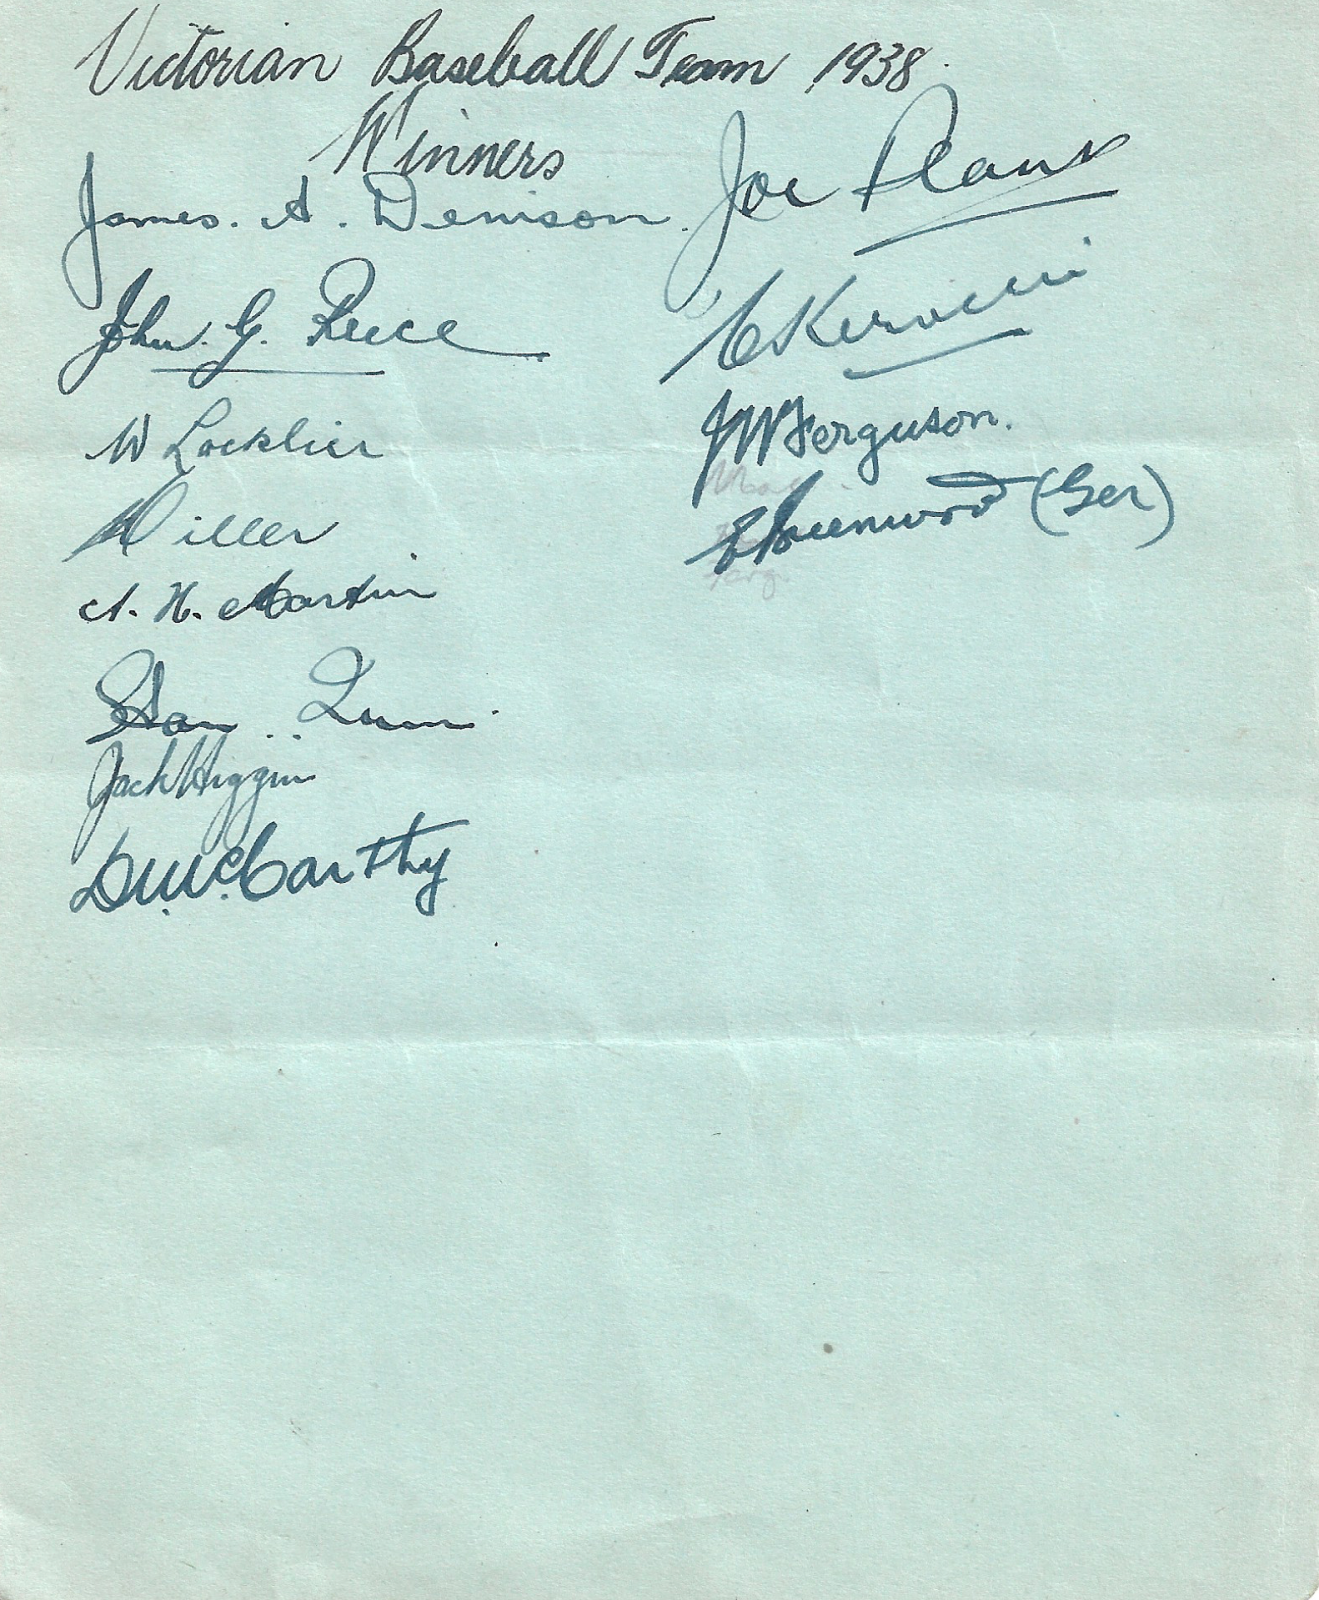 Victorian Baseball Team 1938.
Winners
James. A. Denison.
John. G. Reece
W Locklier
Miller
A. H. Martin
Stan Quinn.
Jack Higgins
D. McCarthy
Joe Plant
C Kerville
JW Ferguson.
E Greenwood (Ger)